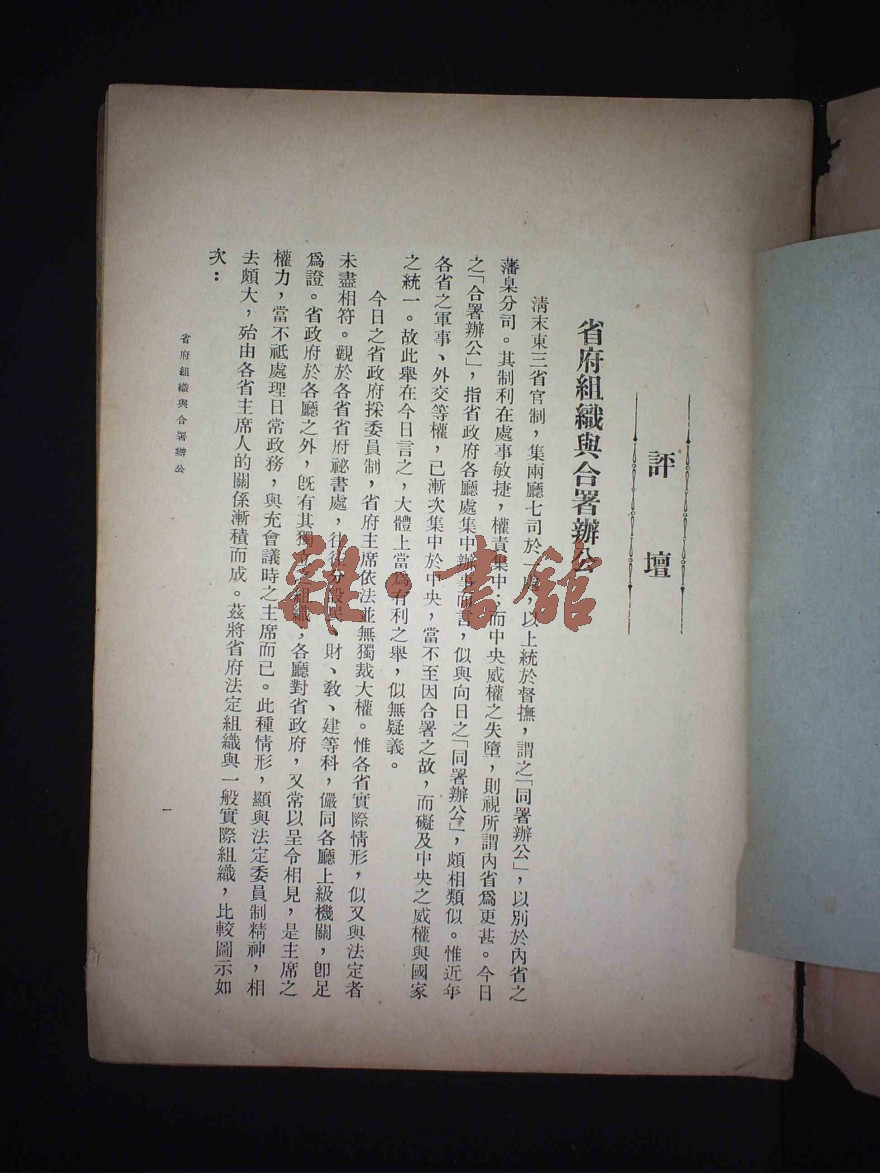 評壇
省府組織與合署辦公
清末東三省官制，集兩廳七司於一署，以上統於督撫，謂之「同署辦公」，以別於內省之
藩臬分司。其制利在處事敏捷，權責集中；而中央威權之失墮，則視所謂內省爲更甚。今日
之「合署辦公」，指省政府各廳處集中辦事而言，似與向日之「同署辦公」，頗相類似。惟近年
各省之軍事、外交等權，已漸次集中於中央，當不至因合署之故，而礙及中央之威權與國家
之統一。故此舉在今日言之，大體上當爲有利之舉，似無疑義。
今日之省政府採委員制，省府主席依法並無獨裁大權。惟各省實際情形，似又與法定者
未盡相符。觀於各省省府祕書處，往往分設民、財、敎、建等科，儼同各廳上級機關，卽足
爲證。省政府於各廳之外，旣有其獨立之組織，各廳對省政府，又常以呈令相見，是主席之
權力，當不祇處理日常政務，與充會議時之主席而已。此種情形，顯與法定委員制精神，相
去頗大，殆由各省主席人的關係漸積而成。茲將省府法定組織與一般實際組織，比較圖示如
次：
省府組織與合署辦公
一
雜·書館